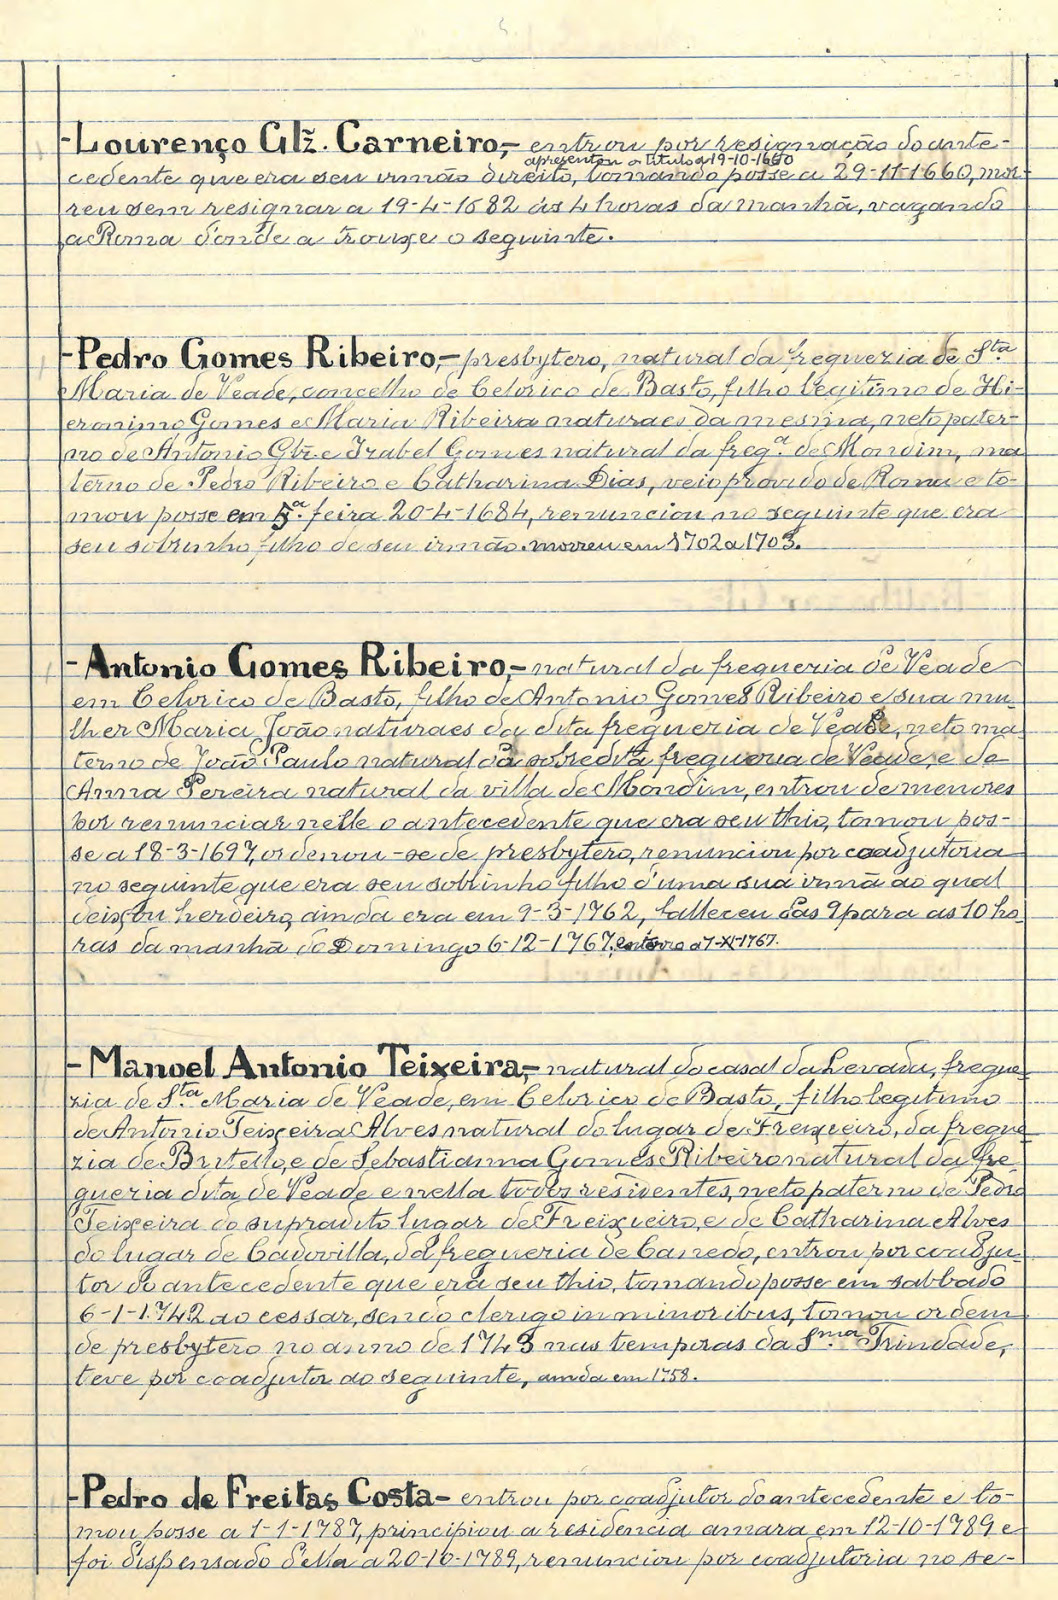 -Lourenço Glz. Carneiro,- entrou por resignação do ante-
apresentou o titulo a 19-10-1660
cedente que era seu irmão direito, tomando posse a 29-11-1660, mor-
reu sem resignar a 19-4-1682 ás 4 horas da manhã, vagando
a Roma d'onde a trouxe o seguinte.
-Pedro Gomes Ribeiro,- presbytero, natural da freguezia de Sta
Maria de Veade, concelho de Celorico de Basto, filho legitimo de Hi-
eronimo Gomes e Maria Ribeira naturaes da mesma, neto pater-
no de Antonio Glz. e Izabel Gomes natural da freg.a de Mondim, ma
terno de Pedro Ribeiro e Catharina Dias, veio provido de Roma e to-
mou posse em 5.a feira 20-4-1684, renunciou no seguinte que era
seu sobrinho filho de seu irmão. morreu em 1702 a 1703.
-Antonio Gomes Ribeiro,- natural da freguezia de Veade
em Celorico de Basto, filho de Antonio Gomes Ribeiro e sua mu-
lher Maria João naturaes da dita freguezia de Veade, neto ma
terno de João Paulo natural da sobredita freguezia de Veade, e de
Anna Pereira natural da villa de Mondim, entrou de menores
por renunciar nelle o antecedente que era seu thio, tomou pos-
se a 18-3-1697, ordenou-se de presbytero, renunciou por coadjutoria
no seguinte que era seu sobrinho filho d'uma sua irmã ao qual
deixou herdeiro, ainda era em 9-3-1762, falleceu das 9 para as 10 ho
ras da manhã do Domingo 6-12-1767, enterro a 7-XI-1767.
-Manoel Antonio Teixeira,- natural do casal da Levada, fregue-
zia de S.ta Maria de Veade, em Celorico de Basto, filho legitimo
de Antonio Teixeira Alves natural do lugar de Freixieiro, da fregue
zia de Britello, e de Sebastianna Gomes Ribeiro natural da fre-
guezia dita de Veade e nella todos residentes, neto paterno de Pedro
Teixeira do supradito lugar de Freixieiro, e de Catharina Alves
do lugar de Cadovilla, da freguezia de Canedo, entrou por coadju-
tor do antecedente que era seu thio, tomando posse em sabbado
6-1-1742 ao cessar, sendo clerigo in minoribus, tomou ordem
de presbytero no anno de 1743 nas temporas da S.ma Trindade,
teve por coadjutor ao seguinte, ainda em 1758.
-Pedro de Freitas Costa- entrou por coadjutor do antecedente e to-
mou posse a 1-1-1787, principiou a residencia amara em 12-10-1789 e
foi dispensado d'ella a 20-10-1789, renunciou por coadjutoria no se-